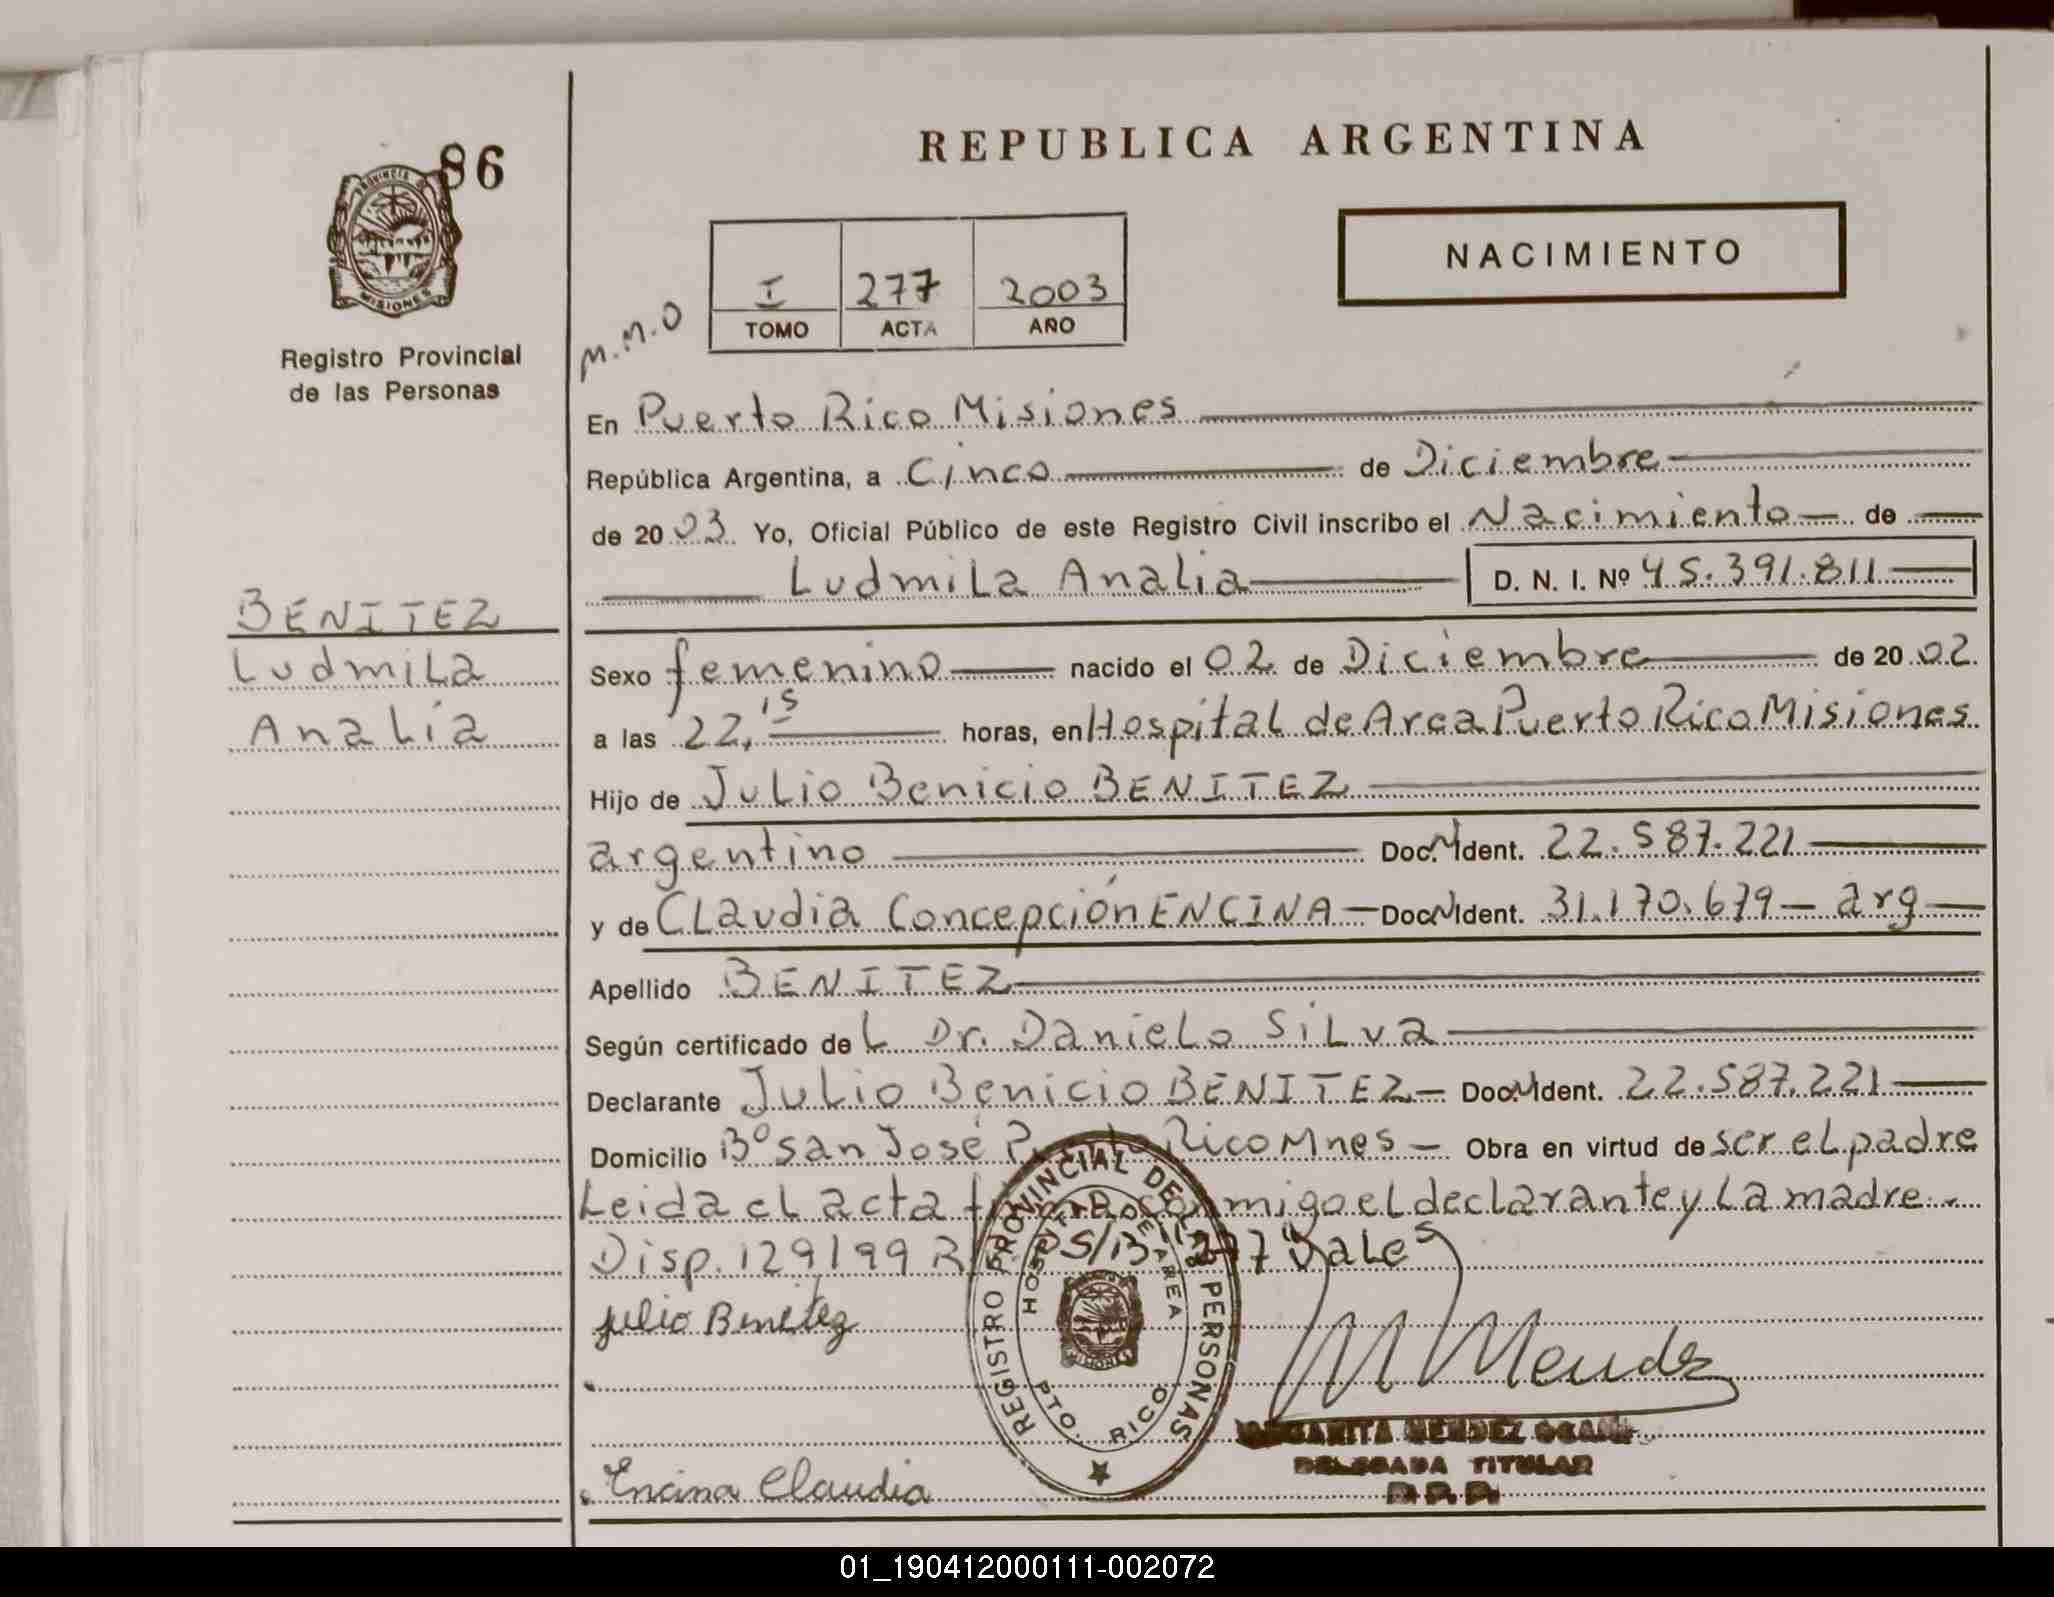 REPUBLICA ARGENTINA
86
PROVINCIA DE
MISIONES
Registro Provincial
de las Personas
NACIMIENTO
I 277 2003
TOMO ACTA AÑO
M.M.O
En Puerto Rico Misiones
República Argentina, a Cinco de Diciembre
de 2003 Yo, Oficial Público de este Registro Civil inscribo el Nacimiento de
Ludmila Analia D. N. I. Nº 45.391.811
BENITEZ
Ludmila
Analía
Sexo femenino nacido el 02 de Diciembre de 2002
a las 22,15 horas, en Hospital de Area Puerto Rico Misiones
Hijo de Julio Benicio BENITEZ
argentino Doc. Ident. 22.587.221
y de Claudia Concepción ENCINA Doc. Ident. 31.170.679 arg
Apellido BENITEZ
Según certificado de L Dr. Danielo Silva
Declarante Julio Benicio BENITEZ Doc. Ident. 22.587.221
Domicilio Bº San José Rico Mnes Obra en virtud de ser el padre
Leida el acta conmigo el declarante y La madre
Disp. 129/99 "Vale"
Julio Benitez
REGISTRO PROVINCIAL DE LAS PERSONAS
HOSPITAL DE AREA
MISIONES
PTO. RICO
M Mendez
MARGARITA MENDEZ
DELEGADA TITULAR
Encina Claudia
01_190412000111-002072